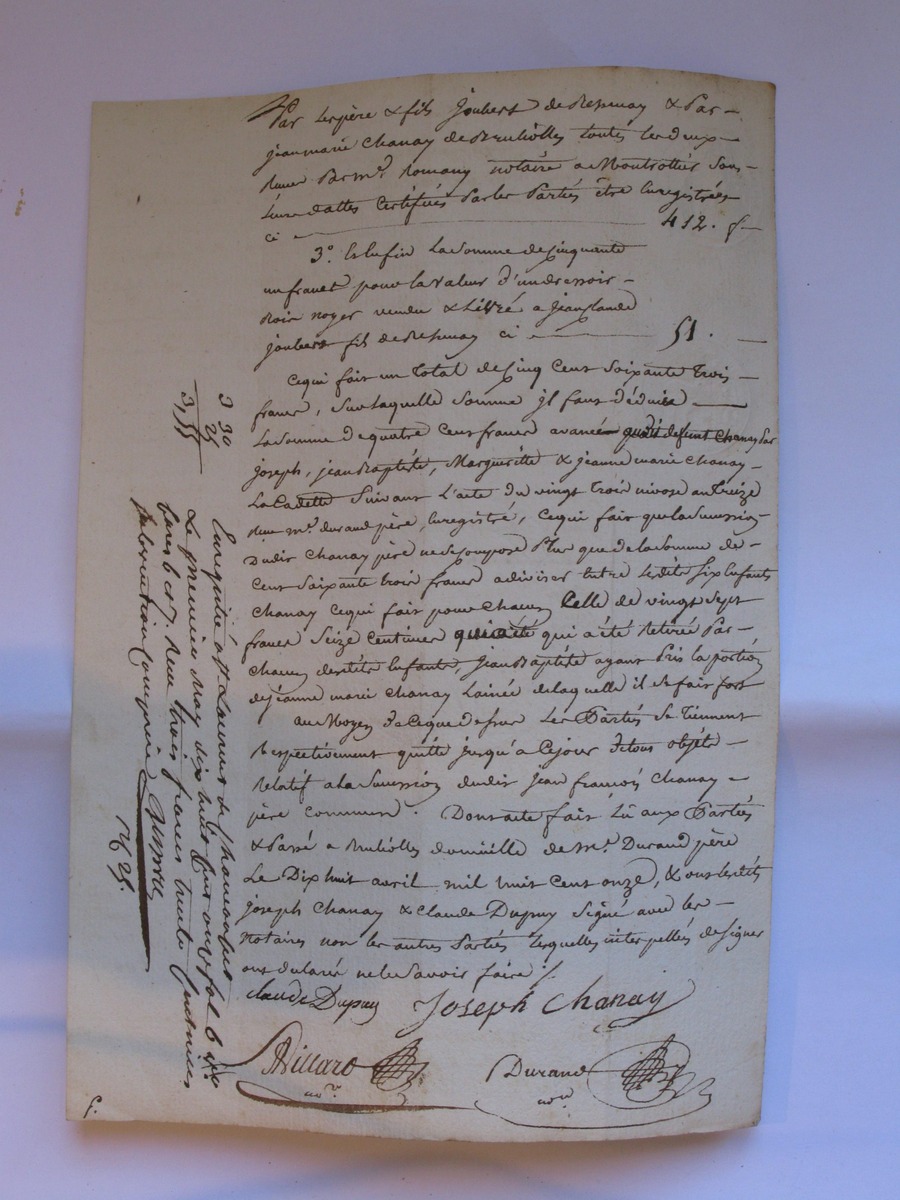 Par les père & fils Joubert de & Par
jean marie Chanay de Brulliolles toutes les deux
Romany notaire a Montrottier Sous
leurs dattes Certifiées Par les Parties être Enregistrées
ci 412. f
3°. Et Enfin La Somme de Cinquante
un francs pour la valeur d'un dressoir
Bois noyer vendu & Livré a jean Claude
joubert fils de ci 51.
Ce qui fait un Total de Cinq Cent Soixante Trois
francs, Sur laquelle Somme il faut déduire
La Somme de quatre Cent francs avancée Chanay Par
joseph, jean Baptiste, Margueritte & jeanne marie Chanay
La Cadette Suivant L'acte du vingt Trois nivose an treize
Reçu me. Durand père, Enregistré, Ce qui fait que la Succession
dudit Chanay père ne Se Compose Plus que de la Somme de
Cent Soixante trois francs a diviser Entre lesdits Six Enfants
Chanay Ce qui fait pour Chacun Celle de vingt Sept
francs Seize Centimes qui a été Retirée Par
Chacun desdits Enfants, Jean Baptiste ayant Pris la portion
de jeanne marie Chanay Lainée de laquelle il Se fait fort
au Moyen de Ce que dessus Les Parties Se Tiennent
Respectivement quitte jusqu'a Ce jour de tous objets
Relatif a la Succession dudit Jean François Chanay
père Commun. Dont acte fait Lu aux Parties
& Passé a Brulliolles domicille de Me. Durand père
Le Dix huit avril mil huit Cent onze, & ont lesdits
joseph Chanay & Claude Dupuy Signé avec les
Notaires non les autres Parties Lesquelles interpellées de Signer
ont declaré ne le Savoir faire ./.
Claude Dupuy Joseph Chanay
Billard Durand
nore nore
3 30
25
3,55
Enregistré a St. Laurent de Chamousset
Le premier May dix huit Cent onze fol. 6
Cases 6 et 7 Reçu trois francs trente Centimes
Subvention Comprise